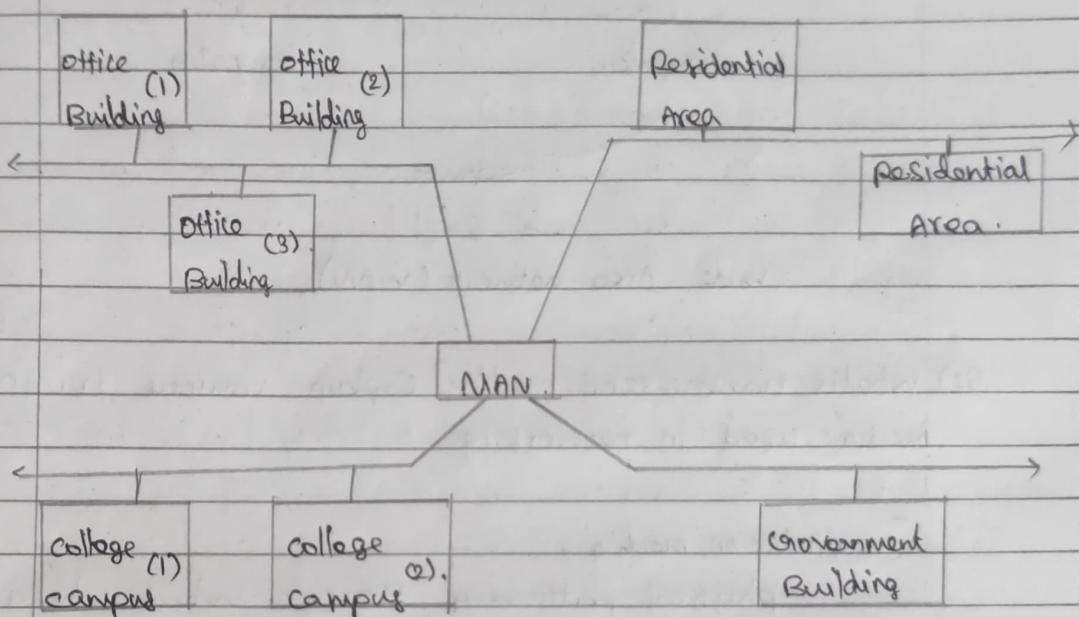 Office (1)
Building
Office (2)
Building
Residential
Area
Residential
Area.
Office (3).
Building
MAN.
College (1)
campus
College (2).
campus
Government
Building